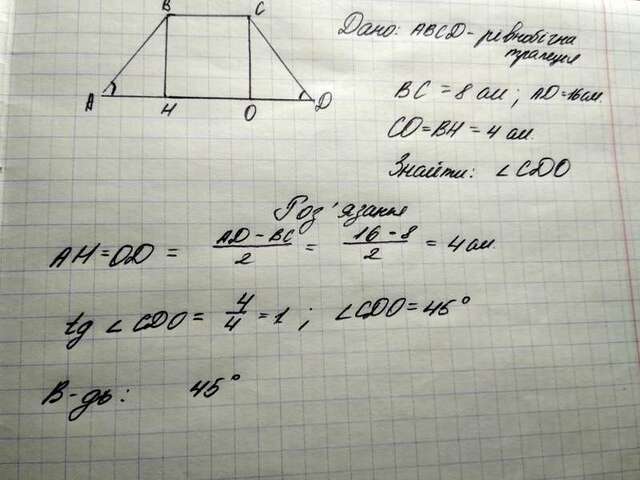 B C
A H O D
Дано: ABCD - рівнобічна
трапеція
BC = 8 см ; AD = 16 см.
CO = BH = 4 см.
Знайти: ∠CDO
Роз'язання
AH = OD = (AD - BC)/2 = (16 - 8)/2 = 4 см.
tg ∠CDO = 4/4 = 1 ; ∠CDO = 45°
В-дь: 45°